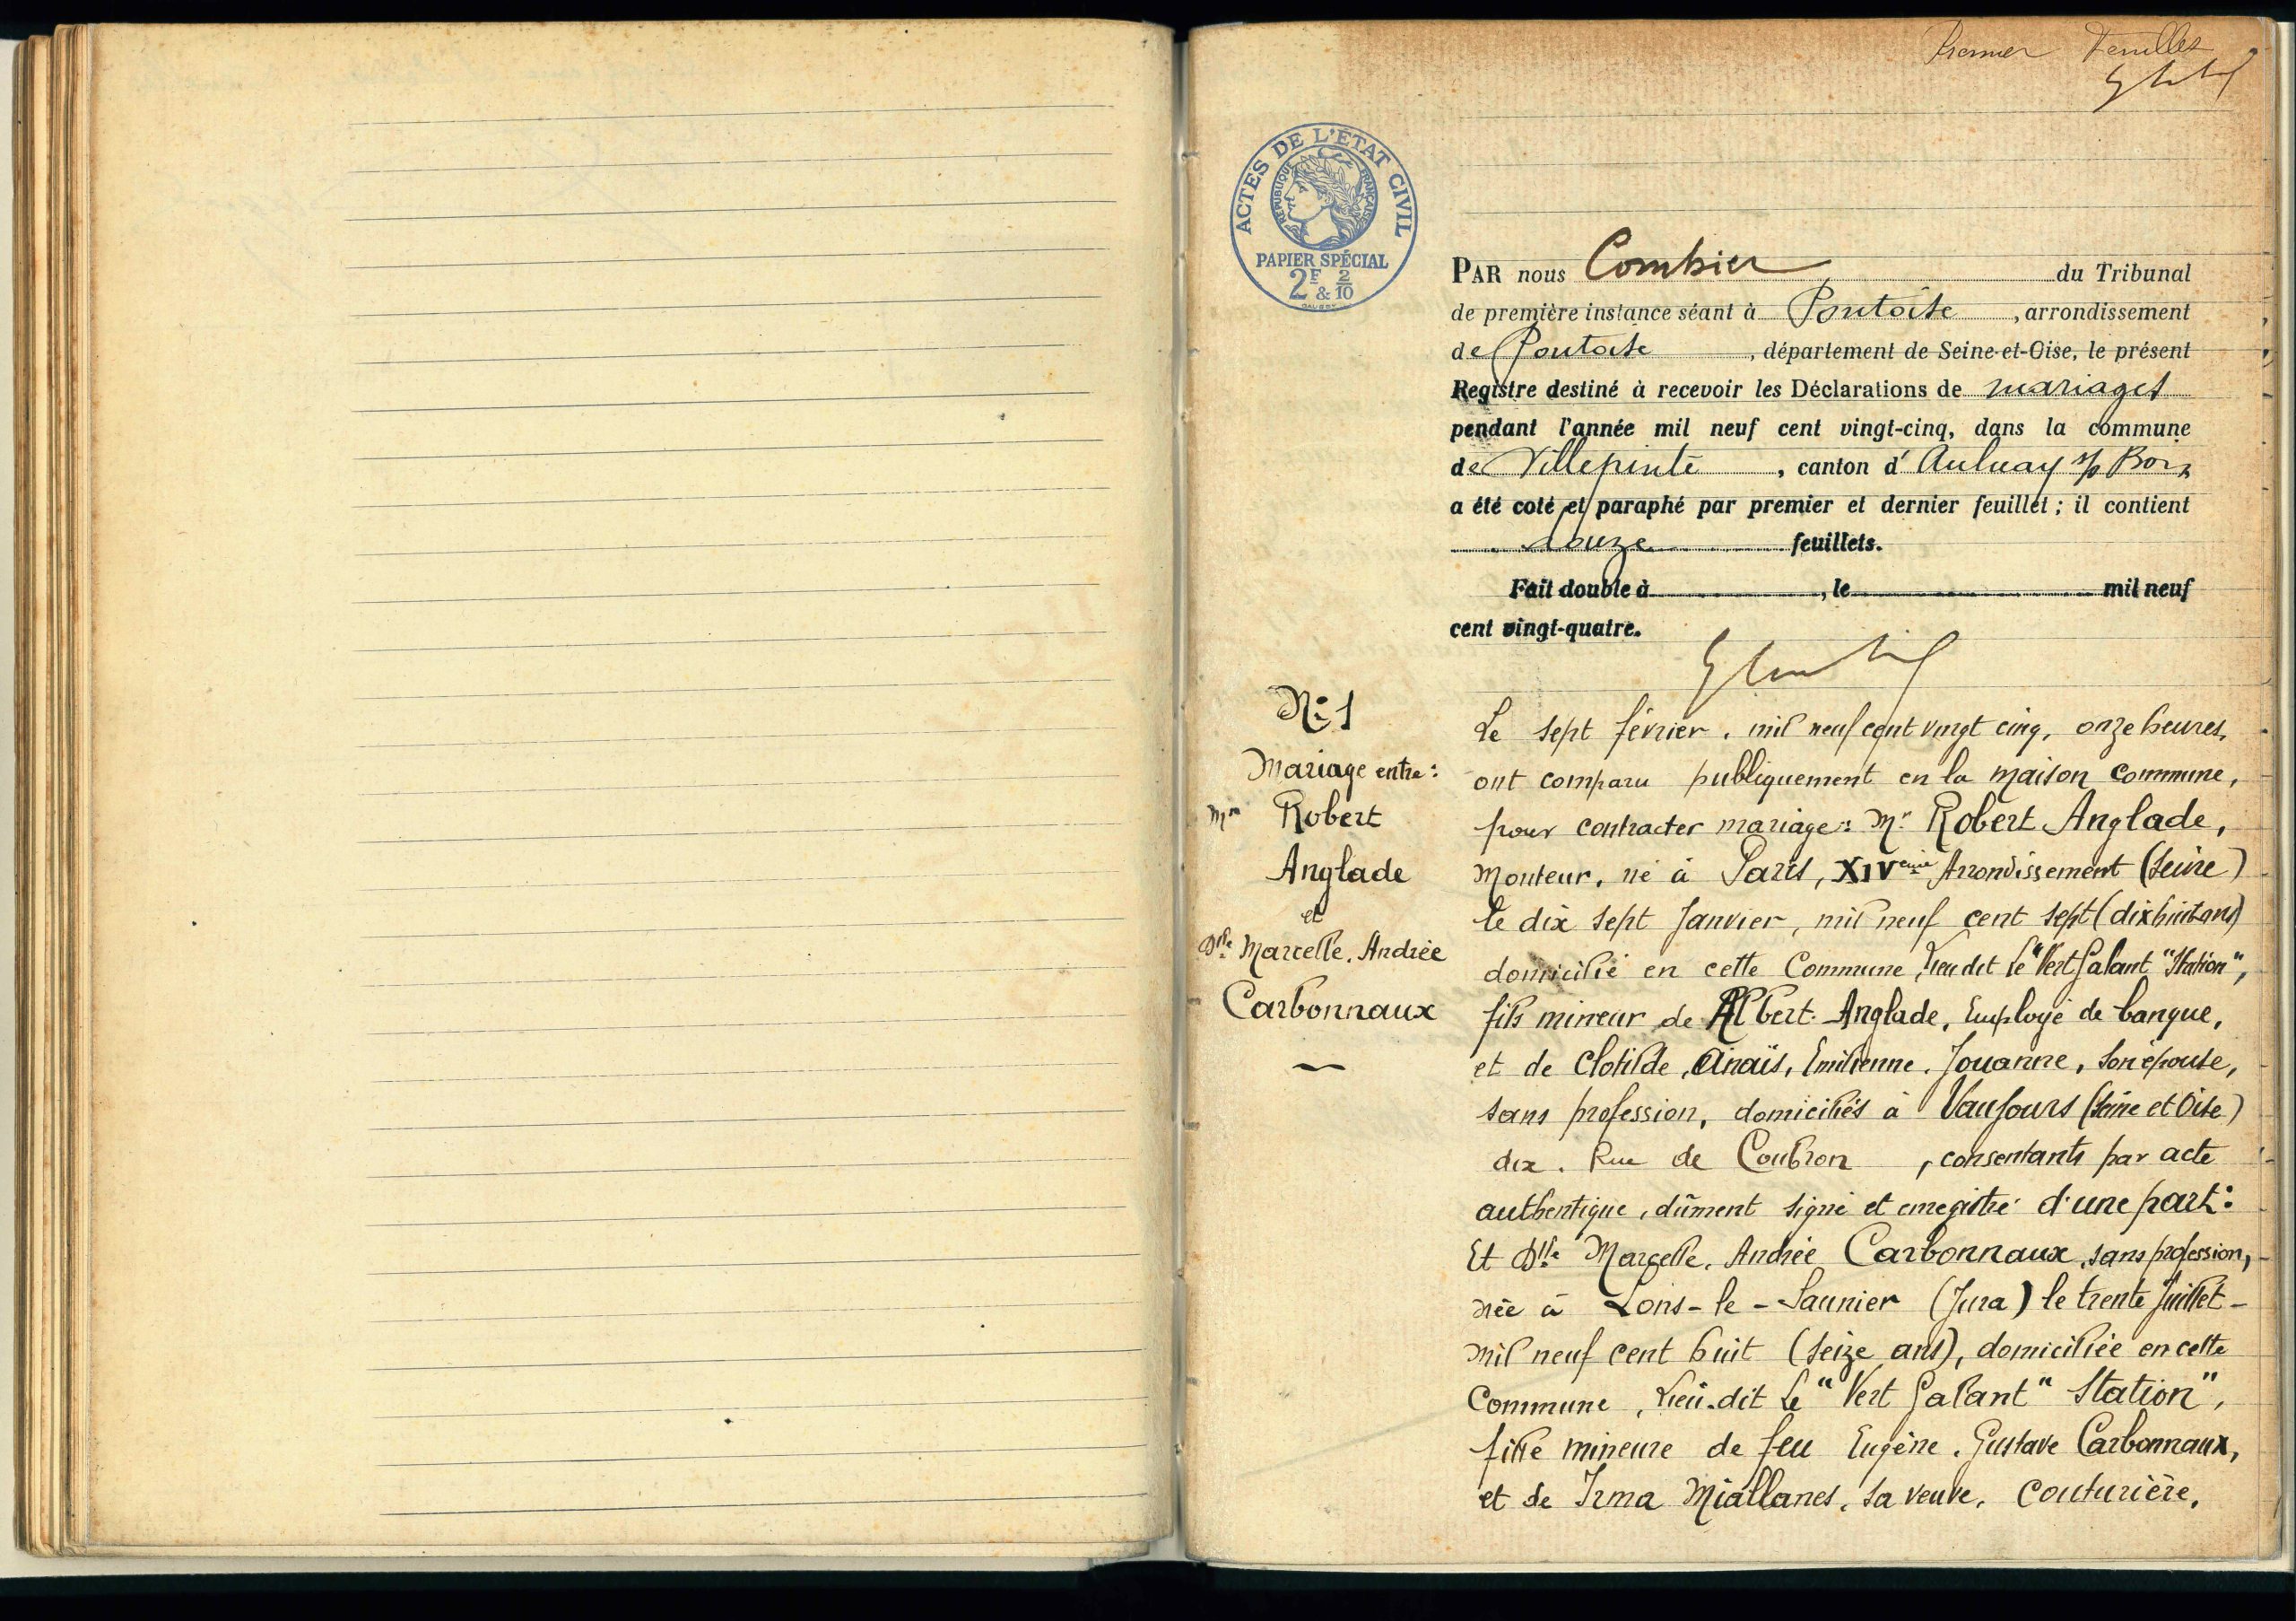 Premier feuillet
ACTES DE L'ÉTAT CIVIL
RÉPUBLIQUE FRANÇAISE
PAPIER SPÉCIAL
2F & 2/10
PAR nous Combier du Tribunal
de première instance séant à Pontoise, arrondissement
de Pontoise, département de Seine-et-Oise, le présent
Registre destiné à recevoir les Déclarations de mariages
pendant l'année mil neuf cent vingt-cinq, dans la commune
de Villepinte, canton d' Aulnay s/s Bois
a été coté et paraphé par premier et dernier feuillet ; il contient
douze feuillets.
Fait double à , le mil neuf
cent vingt-quatre.
N° 1
Mariage entre :
Mr Robert
Anglade
et
Dlle Marcelle, Andrée
Carbonnaux
Le sept février, mil neuf cent vingt cinq, onze heures,
ont comparu publiquement en la maison commune,
pour contracter mariage : Mr Robert Anglade,
Monteur, né à Paris, XIVeme Arrondissement (Seine)
le dix sept Janvier, mil neuf cent sept (dix huit ans)
domicilié en cette Commune, lieu dit Le "Vert Galant "Station",
fils mineur de Albert Anglade, Employé de banque,
et de Clotilde, Anaïs, Emilienne, Jouanne, son épouse,
sans profession, domiciliés à Vaujours (Seine et Oise)
dix, Rue de Coubron, consentants par acte
authentique, dûment signé et enregistré d'une part :
Et Dlle Marcelle, Andrée Carbonnaux, sans profession,
née à Lons-le-Saunier (Jura) le trente Juillet -
mil neuf cent huit (seize ans), domiciliée en cette
Commune, lieu-dit Le "Vert Galant" Station",
fille mineure de feu Eugène, Gustave Carbonnaux,
et de Irma Miallanes, sa veuve, couturière,